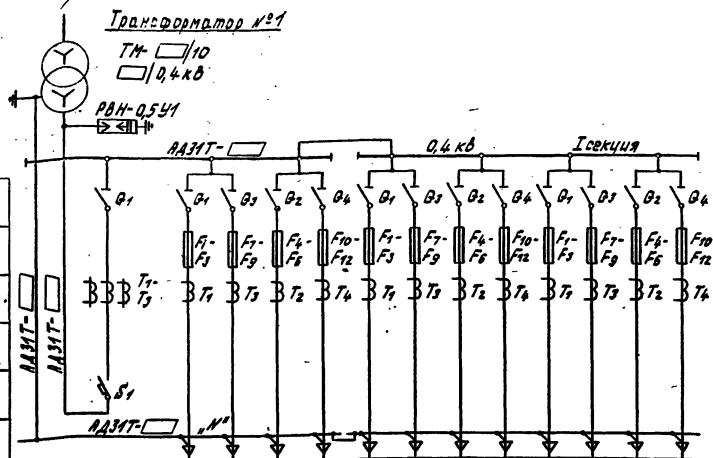 Трансформатор №1
ТМ- /10
/0,4кВ
РВН-0,5У1
АД31Т-
0,4 кВ
I секция
Q1
Q1
Q3
Q2
Q4
Q1
Q3
Q2
Q4
Q1
Q3
Q2
Q4
F1-
F3
F7-
F9
F4-
F6
F10-
F12
F1-
F3
F7-
F9
F4-
F6
F10-
F12
F1-
F3
F7-
F9
F4-
F6
F10
F12
Т1-
Т3
Т1
Т3
Т2
Т4
Т1
Т3
Т2
Т4
Т1
Т3
Т2
Т4
АД31Т-
АД31Т-
S1
АД31Т-
„N"